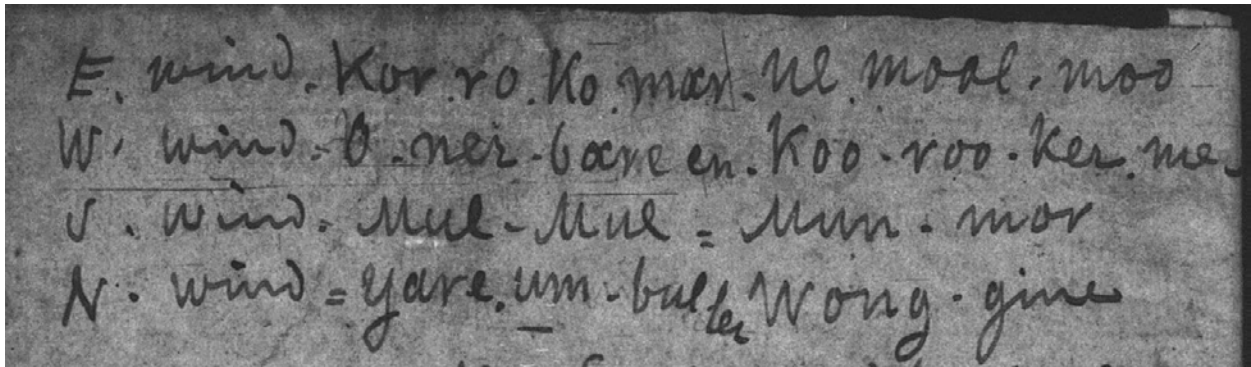 E. wind. Kor.ro.Ko.mar. Ul.maal.moo
W. wind. O.ner-bareen. Koo-roo-Ker.me-
S. wind. Mul-Mul = Mun-mor
N. wind = Yare.um-bul ler Wong-gine